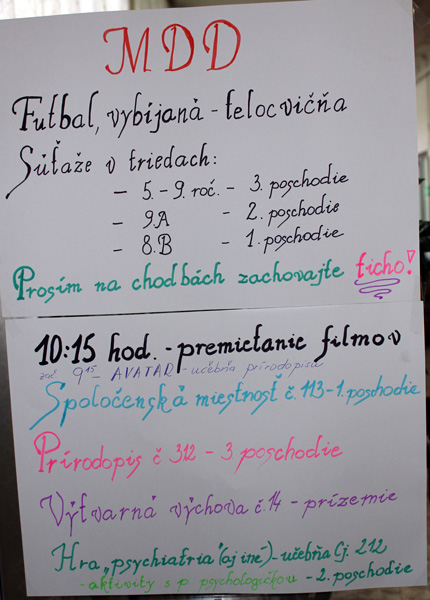 MDD
Futbal, vybíjaná - telocvičňa
Súťaže v triedach:
- 5. - 9. roč. - 3. poschodie
- 9.A - 2. poschodie
- 8.B - 1. poschodie
Prosím na chodbách zachovajte ticho!
10:15 hod. - premietanie filmov
zač 9 15 - AVATAR - učebňa prírodopisu
Spoločenská miestnosť č. 113 - 1. poschodie
Prírodopis č 312 - 3 poschodie
Výtvarná výchova č. 14 - prízemie
Hra „psychiatria" (aj iné) - učebňa Cj. 212
- aktivity s p psychologičkou - 2. poschodie